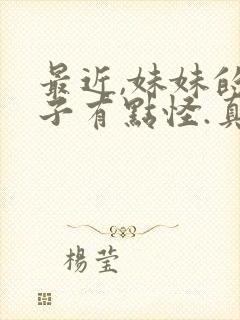 最近,妹妹的
子有點怪.真
楊莹